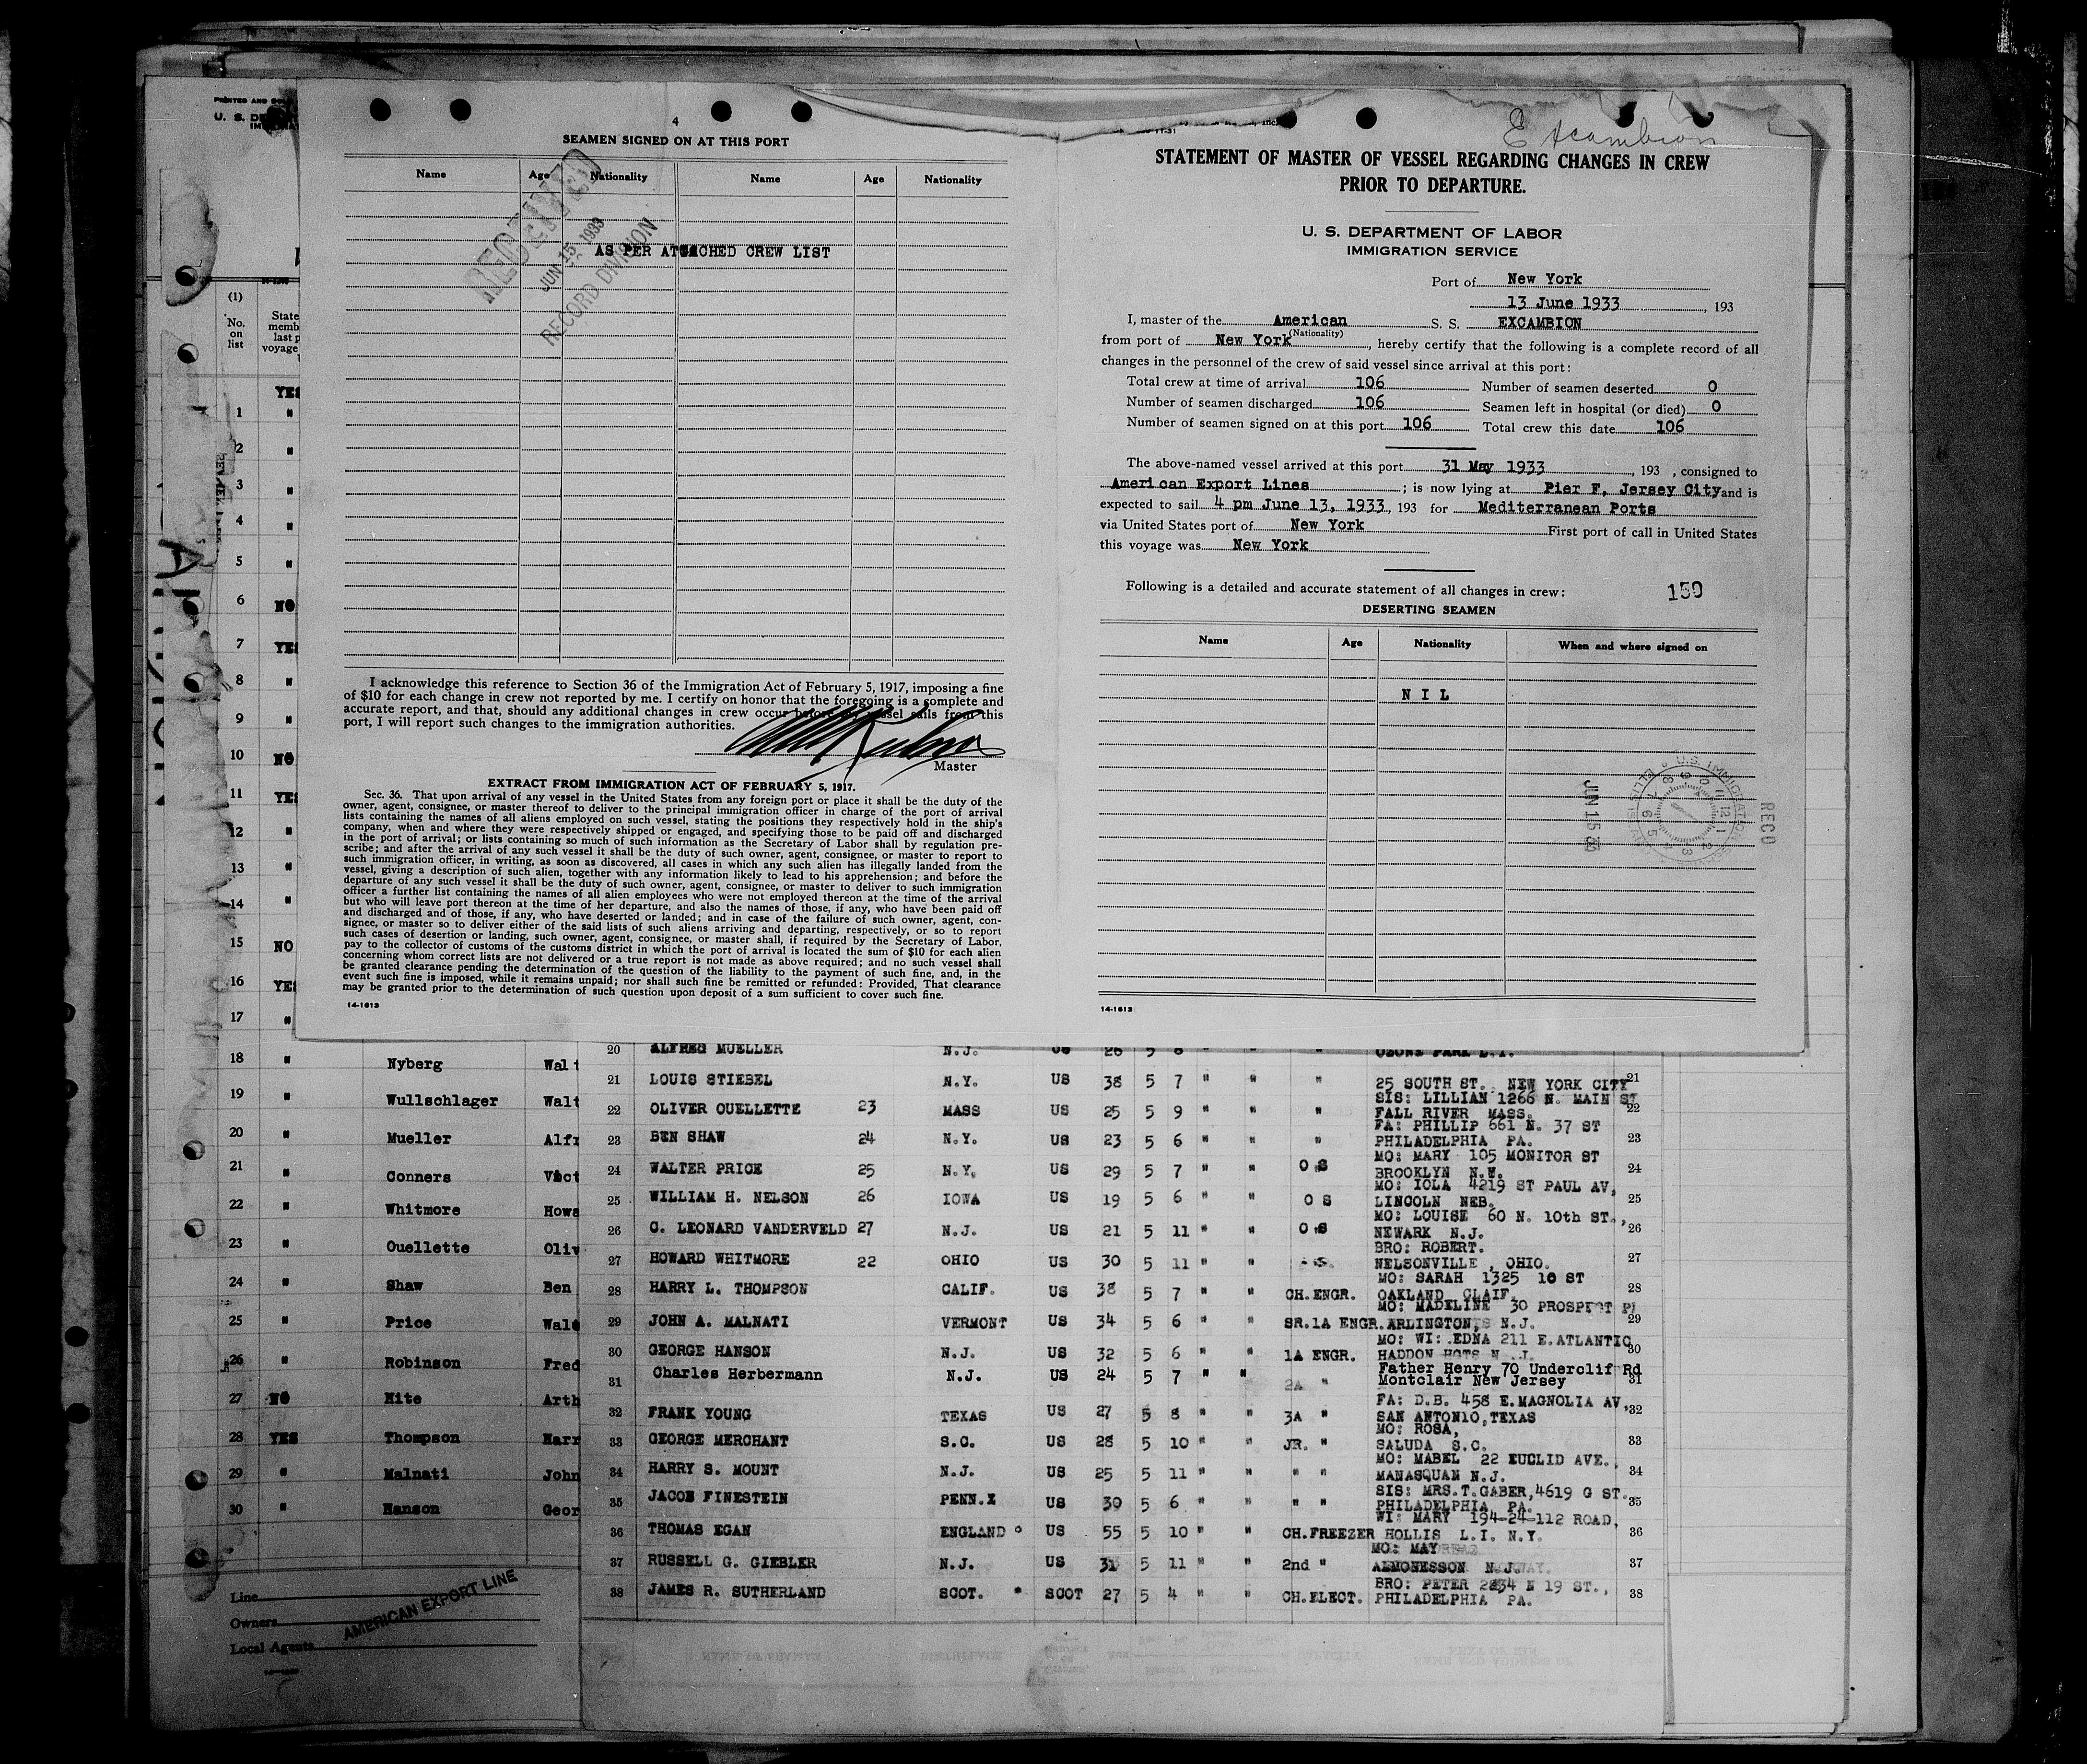 PRINTED AND
U. S. DE
4
SEAMEN SIGNED ON AT THIS PORT
Name Age Nationality Name Age Nationality
RECEIVED
JUN 15 1933
RECORD DIVISION
AS PER ATTACHED CREW LIST
I acknowledge this reference to Section 36 of the Immigration Act of February 5, 1917, imposing a fine
of $10 for each change in crew not reported by me. I certify on honor that the foregoing is a complete and
accurate report, and that, should any additional changes in crew occur before my vessel sails from this
port, I will report such changes to the immigration authorities.
Master
EXTRACT FROM IMMIGRATION ACT OF FEBRUARY 5, 1917.
Sec. 36. That upon arrival of any vessel in the United States from any foreign port or place it shall be the duty of the
owner, agent, consignee, or master thereof to deliver to the principal immigration officer in charge of the port of arrival
lists containing the names of all aliens employed on such vessel, stating the positions they respectively hold in the ship's
company, when and where they were respectively shipped or engaged, and specifying those to be paid off and discharged
in the port of arrival; or lists containing so much of such information as the Secretary of Labor shall by regulation pre-
scribe; and after the arrival of any such vessel it shall be the duty of such owner, agent, consignee, or master to report to
such immigration officer, in writing, as soon as discovered, all cases in which any such alien has illegally landed from the
vessel, giving a description of such alien, together with any information likely to lead to his apprehension; and before the
departure of any such vessel it shall be the duty of such owner, agent, consignee, or master to deliver to such immigration
officer a further list containing the names of all alien employees who were not employed thereon at the time of the arrival
but who will leave port thereon at the time of her departure, and also the names of those, if any, who have been paid off
and discharged and of those, if any, who have deserted or landed; and in case of the failure of such owner, agent, con-
signee, or master so to deliver either of the said lists of such aliens arriving and departing, respectively, or so to report
such cases of desertion or landing, such owner, agent, consignee, or master shall, if required by the Secretary of Labor,
pay to the collector of customs of the customs district in which the port of arrival is located the sum of $10 for each alien
concerning whom correct lists are not delivered or a true report is not made as above required; and no such vessel shall
be granted clearance pending the determination of the question of the liability to the payment of such fine, and, in the
event such fine is imposed, while it remains unpaid; nor shall such fine be remitted or refunded: Provided, That clearance
may be granted prior to the determination of such question upon deposit of a sum sufficient to cover such fine.
14-1613
Excambion
STATEMENT OF MASTER OF VESSEL REGARDING CHANGES IN CREW
PRIOR TO DEPARTURE.
U. S. DEPARTMENT OF LABOR
IMMIGRATION SERVICE
Port of New York
13 June 1933, 193
I, master of the American S. S. EXCAMBION
(Nationality)
from port of New York, hereby certify that the following is a complete record of all
changes in the personnel of the crew of said vessel since arrival at this port:
Total crew at time of arrival 106 Number of seamen deserted 0
Number of seamen discharged 106 Seamen left in hospital (or died) 0
Number of seamen signed on at this port 106 Total crew this date 106
The above-named vessel arrived at this port 31 May 1933, 193 , consigned to
American Export Lines; is now lying at Pier F, Jersey City and is
expected to sail 4 pm June 13, 1933, 193 for Mediterranean Ports
via United States port of New York First port of call in United States
this voyage was New York
Following is a detailed and accurate statement of all changes in crew: 150
DESERTING SEAMEN
Name Age Nationality When and where signed on
N I L
U.S. IMMIGRATION
JUN 15
RECD
14-1613
(1)
No. on list
State
memb
last p
voyage
YES
1 "
2 "
3 "
4 "
5 "
6 NO
7 YES
8 "
9 "
10 NO
11 YES
12 "
13 "
14 "
15 NO
16 YES
17 "
18 " Nyberg Walt
19 " Wullschlager Walt
20 " Mueller Alfr
21 " Conners Vict
22 " Whitmore Howa
23 " Ouellette Oliv
24 " Shaw Ben
25 " Price Walt
26 " Robinson Fred
27 NO Hite Arth
28 YES Thompson Harr
29 " Malnati John
30 " Hanson Geor
Line
Owners
Local Agents
AMERICAN EXPORT LINE
20 ALFRED MUELLER N.J. US 26 5 8 " " " OZONE PARK L.I.
21 LOUIS STIEBEL N.Y. US 38 5 7 " " " 25 SOUTH ST. NEW YORK CITY 21
22 OLIVER OUELLETTE 23 MASS US 25 5 9 " " " SIS: LILLIAN 1266 N. MAIN ST FALL RIVER MASS. 22
23 BEN SHAW 24 N.Y. US 23 5 6 " " " FA: PHILLIP 661 N. 37 ST PHILADELPHIA PA. 23
24 WALTER PRICE 25 N.Y. US 29 5 7 " " O S MO: MARY 105 MONITOR ST BROOKLYN N.Y. 24
25 WILLIAM H. NELSON 26 IOWA US 19 5 6 " " O S MO: IOLA 4219 ST PAUL AV, LINCOLN NEB. 25
26 C. LEONARD VANDERVELD 27 N.J. US 21 5 11 " " O S MO: LOUISE 60 N. 10th ST., NEWARK N.J. 26
27 HOWARD WHITMORE 22 OHIO US 30 5 11 " " BRO: ROBERT. NELSONVILLE , OHIO. 27
28 HARRY L. THOMPSON CALIF. US 38 5 7 " " CH.ENGR. MO: SARAH 1325 10 ST OAKLAND CLAIF. 28
29 JOHN A. MALNATI VERMONT US 34 5 6 " " SR.1A ENGR. MO: MADELINE 30 PROSPECT Pl ARLINGTON, N.J. 29
30 GEORGE HANSON N.J. US 32 5 6 " " 1A ENGR. MO: WI: EDNA 211 E.ATLANTIC HADDON HGTS N.J. 30
31 Charles Herbermann N.J. US 24 5 7 " " 2A " Father Henry 70 Underclif Rd Montclair New Jersey 31
32 FRANK YOUNG TEXAS US 27 5 8 " " 3A " FA: D.B. 458 E.MAGNOLIA AV, SAN ANTONIO,TEXAS 32
33 GEORGE MERCHANT S.C. US 28 5 10 " " JR. " MO: ROSA, SALUDA S.C. 33
34 HARRY S. MOUNT N.J. US 25 5 11 " " " " MO: MABEL 22 EUCLID AVE., MANASQUAN N.J. 34
35 JACOB FINESTEIN PENN.X US 30 5 6 " " " " SIS: MRS.T.GABER,4619 G ST. PHILADELPHIA PA. 35
36 THOMAS EGAN ENGLAND US 55 5 10 " " CH.FREEZER WI: MARY 194-24-112 ROAD, HOLLIS L.I. N.Y. 36
37 RUSSELL G. GIEBLER N.J. US 31 5 11 " " 2nd " MO: MAY ALMONESSON N.J. 37
38 JAMES R. SUTHERLAND SCOT. SCOT 27 5 4 " " CH.ELECT. BRO: PETER 2234 N 19 ST., PHILADELPHIA PA. 38